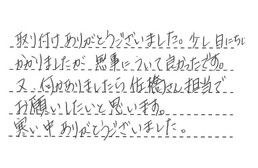 取り付けありがとうございました。少し日にちが
かかりましたが、無事について良かったです。
又、何かありましたら佐橋さん担当で
お願いしたいと思います。
寒い中ありがとうございました。